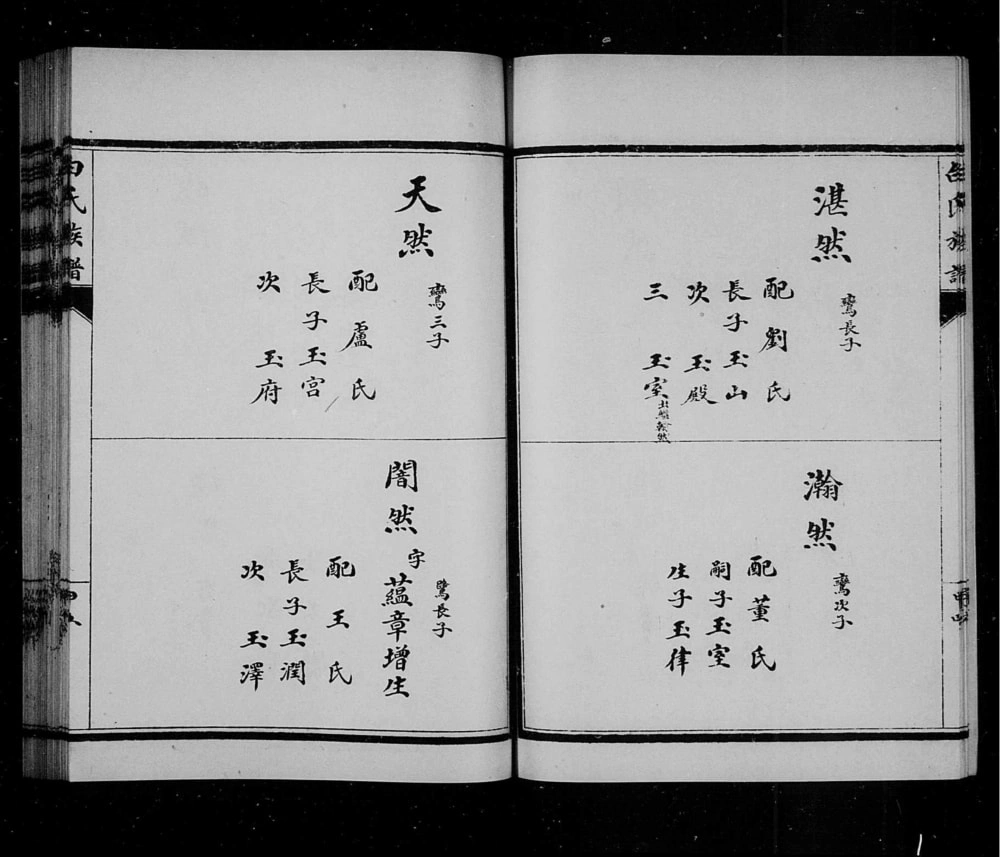 湛然
鸞長子
配劉氏
長子玉山
次玉殿
三玉室出繼瀚然
瀚然
鸞次子
配董氏
嗣子玉室
生子玉律
天然
鸞三子
配盧氏
長子玉宮
次玉府
闇然字蘊章增生
鷺長子
配王氏
長子玉潤
次玉澤
氏族譜